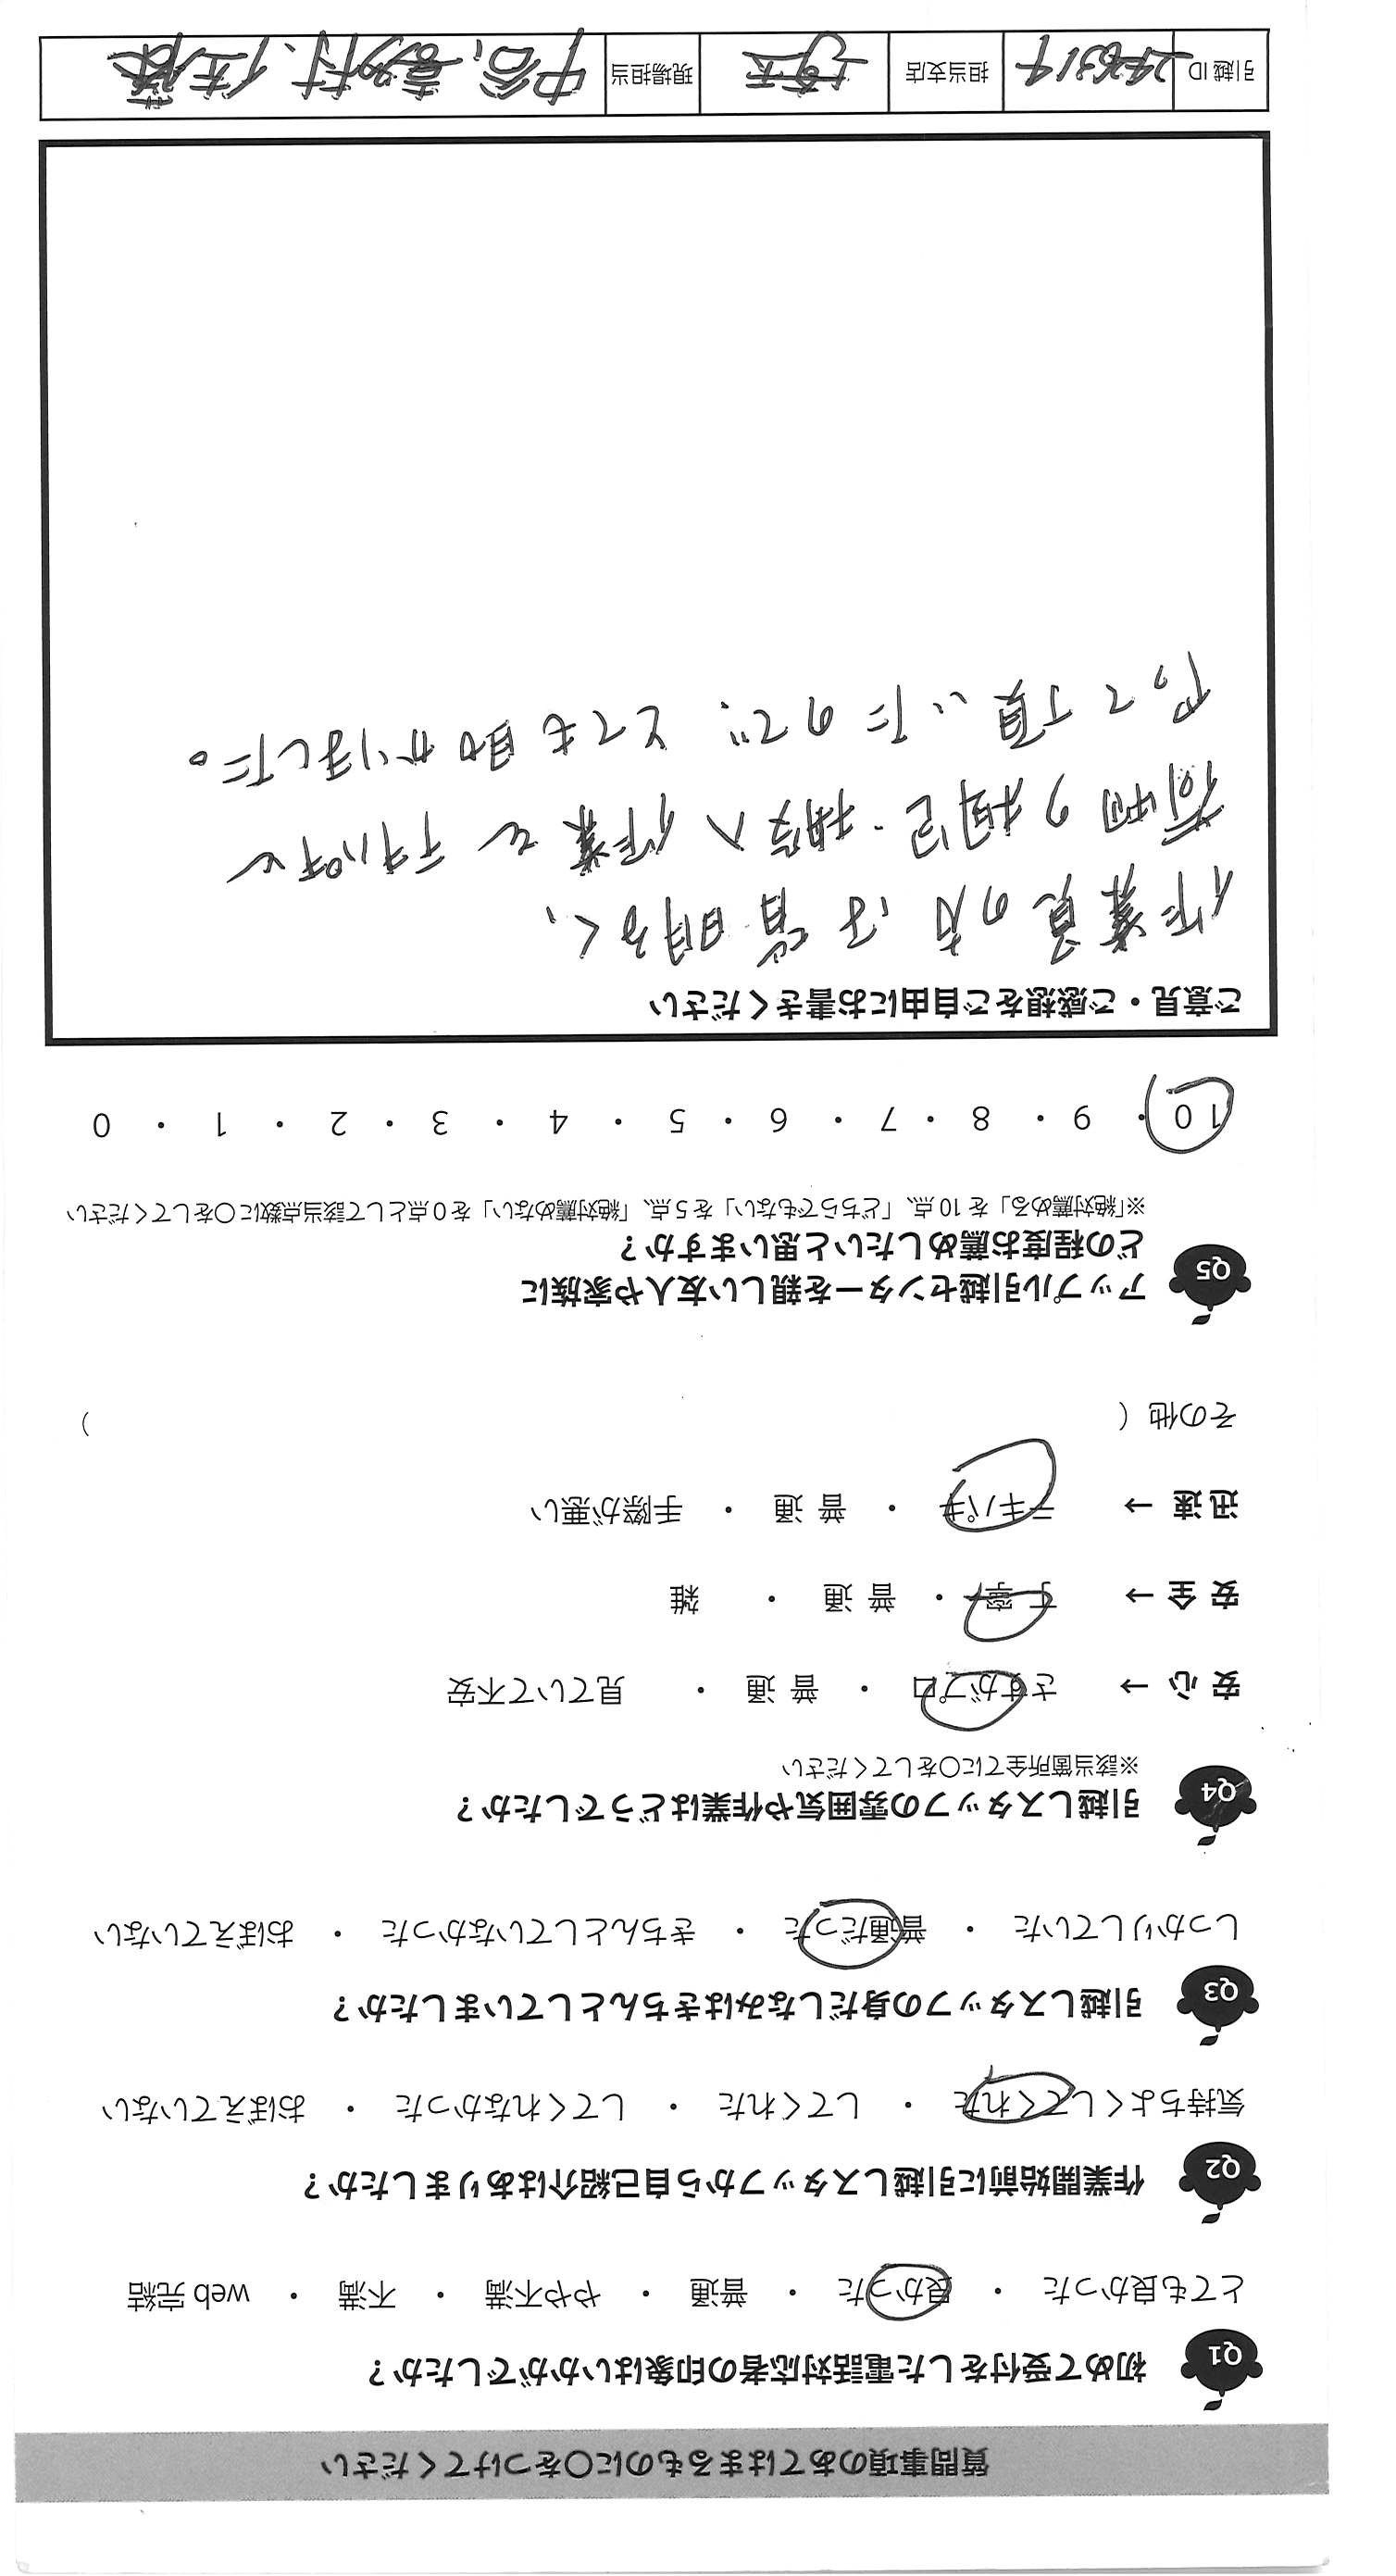 質問事項のあてはまるものに〇をつけてください
Q1 初めて受付をした電話対応者の印象はいかがでしたか？
とても良かった ・ 良かった ・ 普通 ・ やや不満 ・ 不満 ・ web 完結
Q2 作業開始前に引越しスタッフから自己紹介はありましたか？
気持ちよくしてくれた ・ してくれた ・ してくれなかった ・ おぼえていない
Q3 引越しスタッフの身だしなみはきちんとしていましたか？
しっかりしていた ・ 普通だった ・ きちんとしていなかった ・ おぼえていない
Q4 引越しスタッフの雰囲気や作業はどうでしたか？
※該当箇所全てに〇をしてください
安心 → さすがプロ ・ 普通 ・ 見ていて不安
安全 → 丁寧 ・ 普通 ・ 雑
迅速 → テキパキ ・ 普通 ・ 手際が悪い
その他（ ）
Q5 アップル引越センターを親しい友人や家族に
どの程度お薦めしたいと思いますか？
※「絶対薦める」を10点、「どちらでもない」を5点、「絶対薦めない」を0点として該当点数に〇をしてください
10 ・ 9 ・ 8 ・ 7 ・ 6 ・ 5 ・ 4 ・ 3 ・ 2 ・ 1 ・ 0
ご意見・ご感想をご自由にお書きください
作業員の方は皆明るく、
荷物の梱包・搬入作業をテキパキと
やって頂いたので、とても助かりました。
引越ID 担当支店 埼玉 現場担当 中谷、喜多村、佐藤